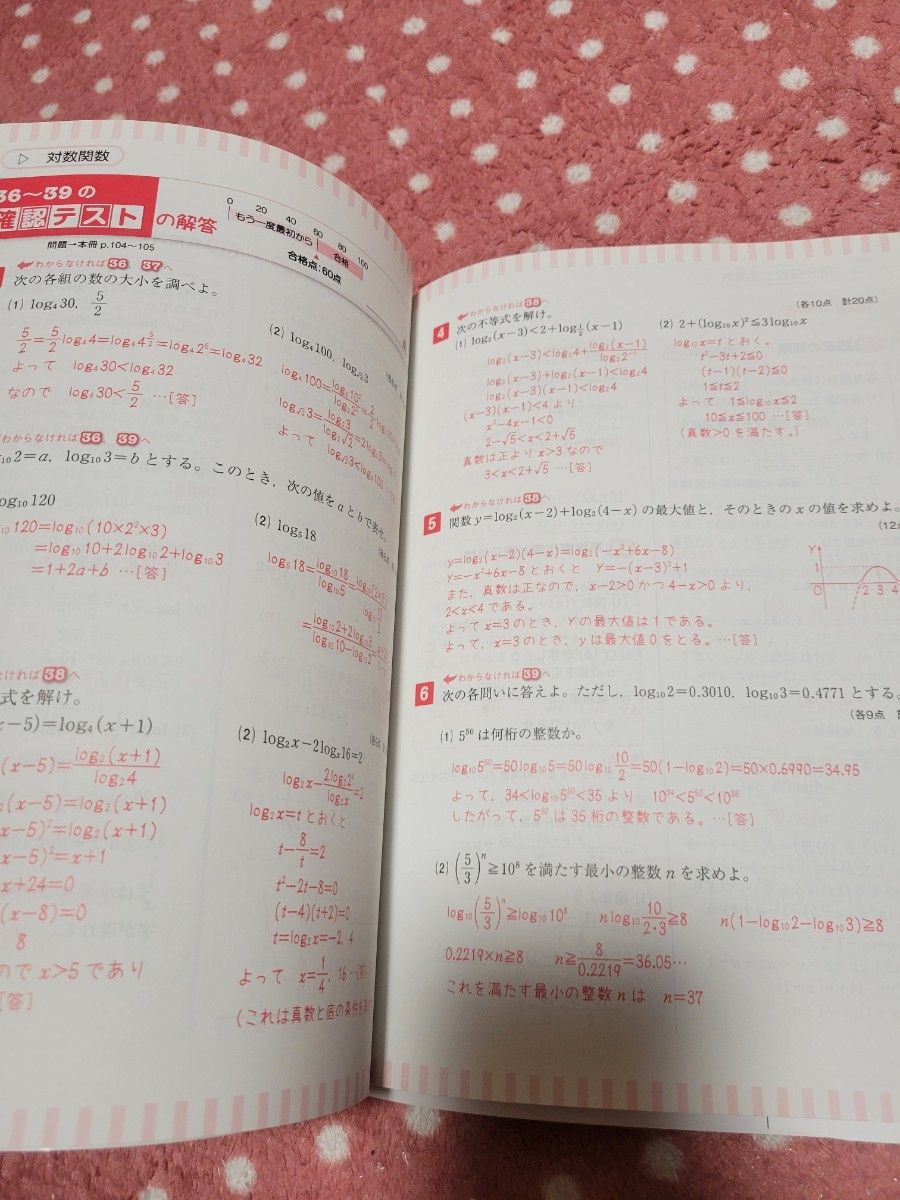 ▷ 対数関数
36～39の
確認テスト の解答
0 20 40 60 80 100
もう一度最初から 合格
合格点:60点
問題→本冊 p.104～105
わからなければ 36 37 へ
次の各組の数の大小を調べよ。
(1) log₄30, 5/2
5/2=5/2 log₄4=log₄4^(5/2)=log₄2⁵=log₄32
よって log₄30<log₄32
なので log₄30<5/2 …[答]
(2) log₄100, log_√3 3
よって
わからなければ 36 39 へ
2=a, log₁₀3=bとする。このとき，次の値をaとbで表せ。
log₁₀120
120=log₁₀(10×2²×3)
=log₁₀10+2log₁₀2+log₁₀3
=1+2a+b …[答]
(2) log₅18
log₅18=log₁₀18/log₁₀5
なければ 38 へ
式を解け。
x−5)=log₄(x+1)
(x−5)=log₂(x+1)/log₂4
(x−5)=log₂(x+1)
x−5)²=log₂(x+1)
x−5)²=x+1
x+24=0
(x−8)=0
8
のでx>5であり
[答]
(2) log₂x−2logₓ16=2
log₂x−2log₂2⁴/log₂x=2
log₂x=tとおくと
t−8/t=2
t²−2t−8=0
(t−4)(t+2)=0
t=log₂x=−2, 4
よって x=1/4, 16 …[答]
(これは真数と底の条件を
わからなければ 38 へ
4 次の不等式を解け。 (各10点 計20点)
(1) log₂(x−3)<2+log_(1/2)(x−1)
log₂(x−3)<log₂4+log₂(x−1)/log₂2⁻¹
log₂(x−3)+log₂(x−1)<log₂4
log₂(x−3)(x−1)<log₂4
(x−3)(x−1)<4 より
x²−4x−1<0
2−√5<x<2+√5
真数は正より x>3 なので
3<x<2+√5 …[答]
(2) 2+(log₁₀x)²≦3log₁₀x
log₁₀x=t とおく。
t²−3t+2≦0
(t−1)(t−2)≦0
1≦t≦2
よって 1≦log₁₀x≦2
10≦x≦100 …[答]
(真数>0を満たす。)
わからなければ 38 へ
5 関数 y=log₂(x−2)+log₂(4−x) の最大値と，そのときの x の値を求めよ。
(12
y=log₂(x−2)(4−x)=log₂(−x²+6x−8)
Y=−x²+6x−8とおくと Y=−(x−3)²+1
また，真数は正なので，x−2>0かつ4−x>0より，
2<x<4である。
よってx=3のとき，Yの最大値は1である。
よって，x=3のとき，yは最大値0をとる。…[答]
Y
1
O 2 3 4
わからなければ 39 へ
6 次の各問いに答えよ。ただし，log₁₀2=0.3010, log₁₀3=0.4771とする。
(各9点
(1) 5⁵⁰は何桁の整数か。
log₁₀5⁵⁰=50log₁₀5=50log₁₀10/2=50(1−log₁₀2)=50×0.6990=34.95
よって，34<log₁₀5⁵⁰<35より 10³⁴<5⁵⁰<10³⁵
したがって，5⁵⁰は35桁の整数である。…[答]
(2) (5/3)ⁿ≧10⁸を満たす最小の整数nを求めよ。
log₁₀(5/3)ⁿ≧log₁₀10⁸ nlog₁₀10/(2·3)≧8 n(1−log₁₀2−log₁₀3)≧8
0.2219×n≧8 n≧8/0.2219=36.05…
これを満たす最小の整数nは n=37